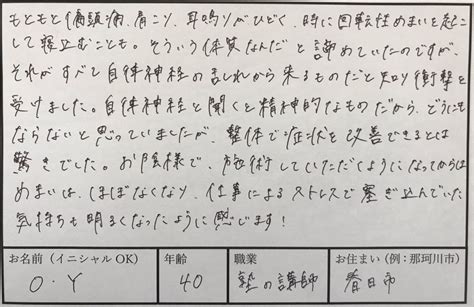 もともと偏頭痛、肩こり、耳鳴りがひどく、時に回転性めまいを起こ
して寝込むことも。そういう体質なんだと諦めていたのですが、
それがすべて自律神経の乱れから来るものだと知り衝撃を
受けました。自律神経と聞くと精神的なものだから、どうにも
ならないと思っていましたが、整体で症状を改善できるとは
驚きでした。お陰様で、施術していただくようになってからは
めまいは、ほぼなくなり、仕事によるストレスで塞ぎ込んでいた
気持ちも明るくなったように感じます！
お名前（イニシャルOK） 年齢 職業 お住まい（例：那珂川市）
O・Y 40 塾の講師 春日市